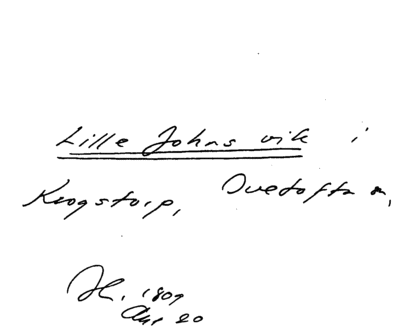 Lille Johns vik i
Krogstorp, Ovetofta n,
Jh. 1809
Aug 20